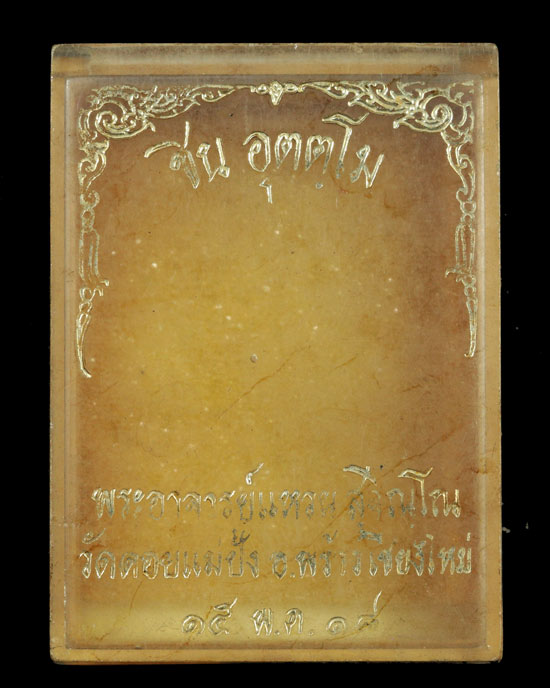 รุ่น อุตตฺโม
พระอาจารย์แหวน สุจิณฺโณ
วัดดอยแม่ปั๋ง อ.พร้าว เชียงใหม่
๑๕ พ.ค. ๑๘